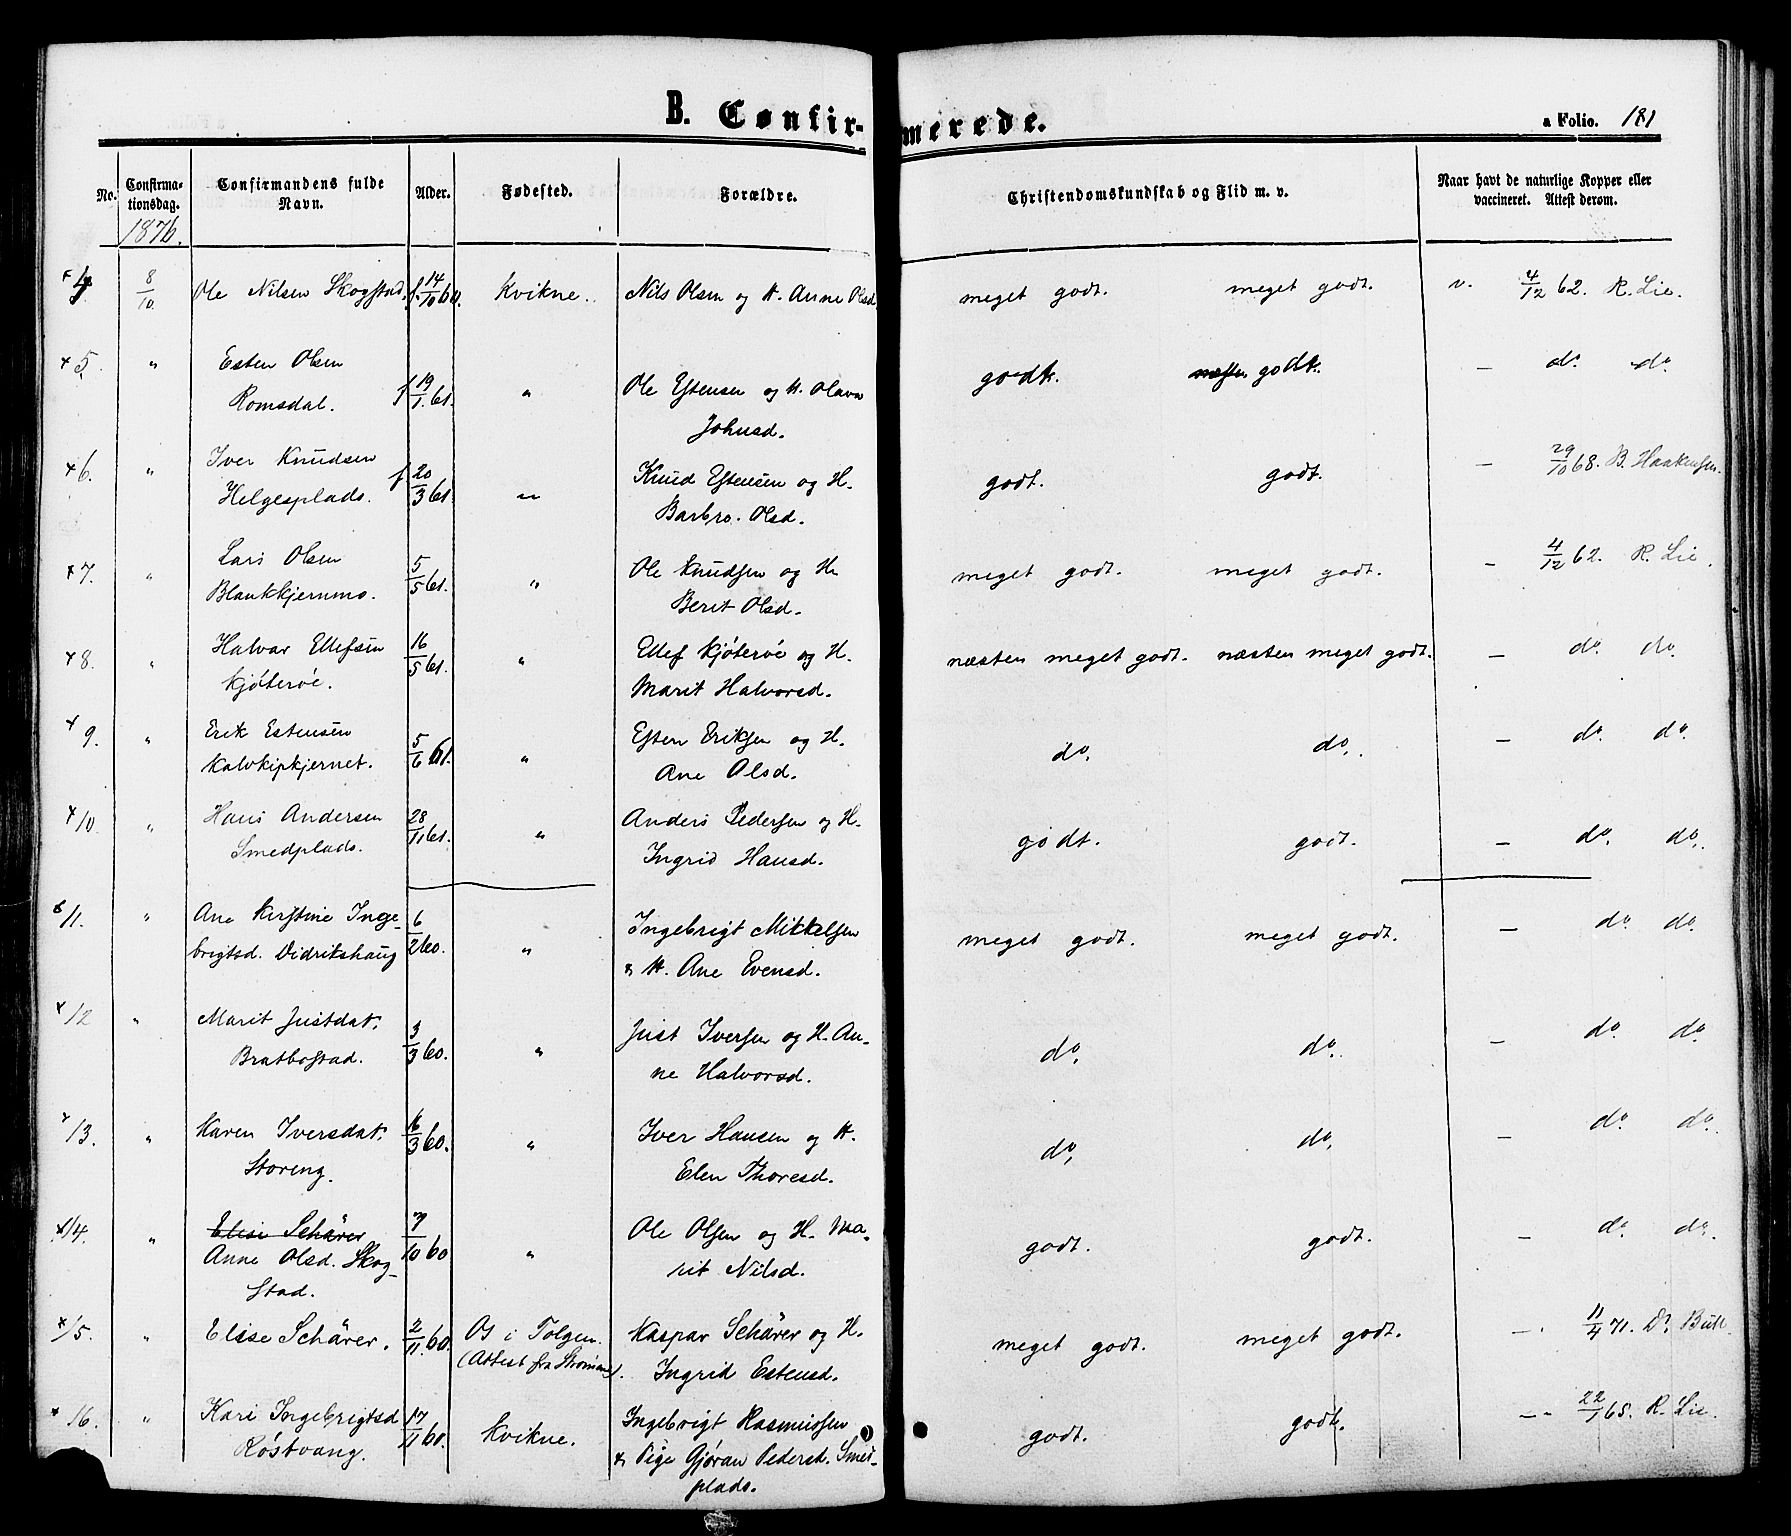 B. Confirmerede.
a Folio. 181
No.
Confirmationsdag.
Confirmandens fulde Navn.
Alder.
Fødested.
Forældre.
Christendomskundskab og Flid m. v.
Naar havt de naturlige Kopper eller vaccineret. Attest derom.
1876.
4 8/10 Ole Nilsen Skogstad. f. 14/10 60. Kvikne. Nils Olsen og H. Anne Olsd. meget godt. meget godt. v. 4/12 62. R. Lie.
+ 5. " Esten Olsen
Romsdal. f 19/1 61. " Ole Estensen og H. Olava
Johnsd. godt. godt. – do. do.
+ 6. " Iver Knudsen
Helgesplads. f 20/3 61. " Knud Estensen og H.
Barbro Olsd. godt. godt. – 29/10 68. B. Haakensen.
+ 7. " Lars Olsen
Blankkjernmo. 5/5 61. " Ole Knudsen og H.
Berit Olsd. meget godt. meget godt. – 4/12 62. R. Lie.
+ 8. " Halvar Ellefsen
Kjøterøe. 16/5 61. " Ellef Kjøterøe og H.
Marit Halvorsd. næsten meget godt. næsten meget godt. – do. do.
+ 9. " Erik Estensen
Kalvkipkjernet. 5/6 61. " Esten Eriksen og H.
Ane Olsd. do. do. – do. do.
+ 10. " Hans Andersen
Smedplads. 28/11 61. " Anders Pedersen og H.
Ingrid Hansd. godt. godt. – do. do.
11. " Ane Kirstine Inge-
brigtsd. Didrikshaug 6/2 60. " Ingebrigt Mikkelsen
& H. Ane Evensd. meget godt. meget godt. – do. do.
+ 12 " Marit Justdat.
Bratbostad. 3/3 60. " Just Iversen og H. An-
ne Halvorsd. do. do. – do. do.
+ 13. " Karen Iversdat.
Storeng. 16/3 60. " Iver Hansen og H.
Elen Thoresd. do. do. – do. do.
+ 14. " Elise Schärer
Anne Olsd. Skog-
stad. 7/10 60 " Ole Olsen og H. Ma-
rit Nilsd. godt. godt. – do. do.
+ 15. " Elise Schärer. 2/11 60. Os i Tolgen. Kaspar Schärer og H.
(Attest fra ). Ingrid Estensd. meget godt. meget godt. – 11/4 71. Dr. Bull.
+ 16. " Kari Ingebrigtsd
Røstvang. 17/11 60. Kvikne. Ingebrigt Rasmussen
& Pige Gjøran Pedersd. Smed-
plads. godt. godt. – 22/1 65. R. Lie.